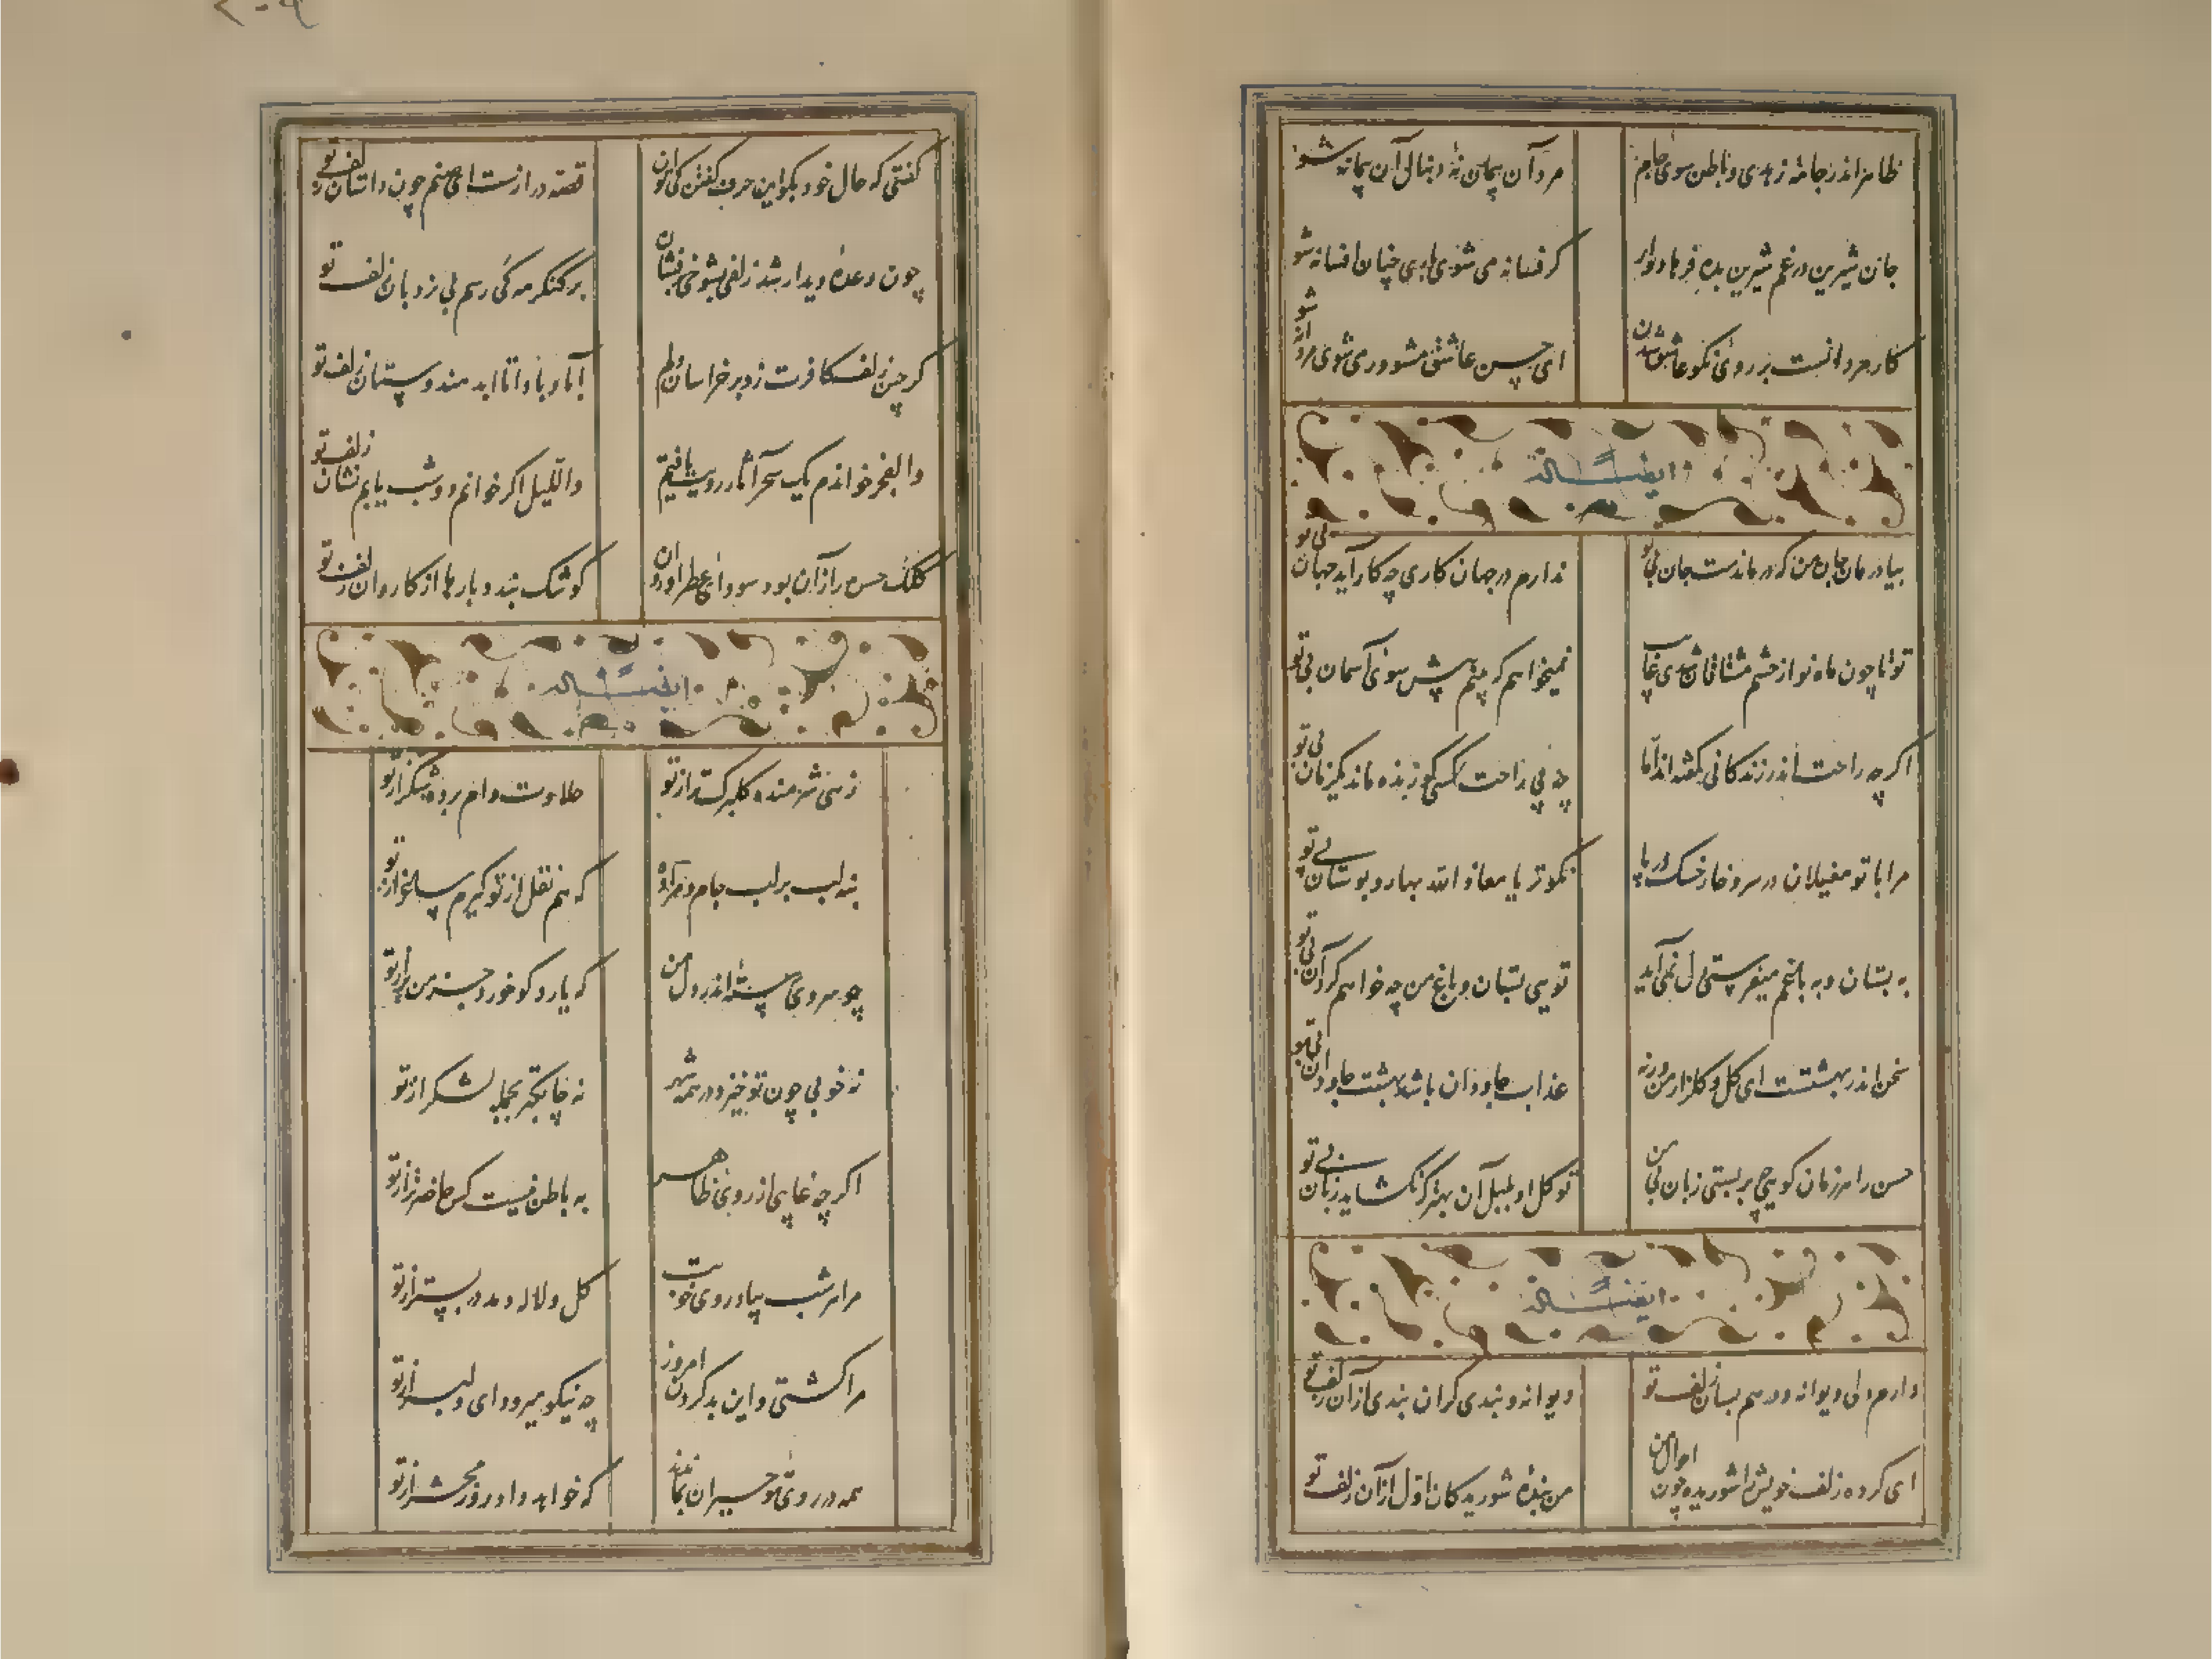 ظاهر اندر جامهٔ زهدی و باطن سوی جام
مرد آن پیمان نهٔ دنبال آن پیمانه شو
جان شیرین در غم شیرین بده فرهادوار
کر فسانه می شوی باری چنان افسانه شو
کار مردانست بر روی نکو عاشق شدن
ای حسن عاشق مشو ور می شوی مردانه شو
ایضا له
بیا درمان جان من که درماندست جان بی تو
ندارم در جهان کاری چه کار آید جهان بی تو
تو تا چون ماه نو از چشم مشتاقان شدی غایب
نمیخواهم که بینم پیش سوی آسمان بی تو
اکرچه راحت اندر زندکانی کفته اند اما
چه بی راحت کسی کو زنده ماند یکزمان بی تو
مرا با تو مغیلان در سر و خار خسک در پا
نکوتر یا معاذ الله بهار و بوستان بی تو
به بستان و به باغم میفرستی دل نمی آید
تویی بستان و باغ من چه خواهم کرد آن بی تو
سخن اندر بهشتست ای کل و کلزار من ورنه
عذاب جاودان باشد بهشت جاودان بی تو
حسن را هر زمان کویی چه بر بستی زبان بی من
تو کل او بلبل آن بهتر که نکشاید زبان بی تو
ایضا له
دارم دلی دیوانه و درهم بسان زلف تو
دیوانه و بندی کران بندی از آن زلف تو
ای کرده زلف خویش را شوریده چون احوال من
من بندهٔ شوریدکان اول از آن زلف تو
کفتی که حال خود بکو این حرف کفتن کی توان
قصه درازست ای صنم چون داستان زلف تو
چون وعدهٔ دیدار شد زلفی بشوخی برفشان
بر کنکر مه کی رسم بی نردبان زلف تو
کر چین زلف کافرت زد بر خراسان ظلم
آباد بادا تا ابد هندوستان زلف تو
والفجر خواندم یک سحر آثار رویت یافتم
واللیل اکر خوانم دو شب یابم نشان زلف تو
کلک حسن را زآن بود سودای عطر اورد آن
کو مشک بندد بارها از کاروان زلف تو
ایضا له
زهی شرمنده کلبرک تر از تو
حلاوت وام برده شکر از تو
بنه لب بر لب جام و مرا ده
که هم نقل از تو کیرم هم ساغر از تو
چو سروی رسته اندر دل من
که یارد کو خورد جز من بر از تو
نه خوبی چون تو خیزد در همه شهر
نه چابکتر بجمله لشکر از تو
اکرچه غایبی از روی ظاهر
به باطن نیست کس حاضرتر از تو
مرا هر شب بیاد روی خوبت
کل و لاله دمد در بستر از تو
مرا کشتی و این بد کردن امروز
چه نیکو میرود ای دلبر از تو
همه در روی تو حیران بمانند
که خواهد داد روز محشر از تو